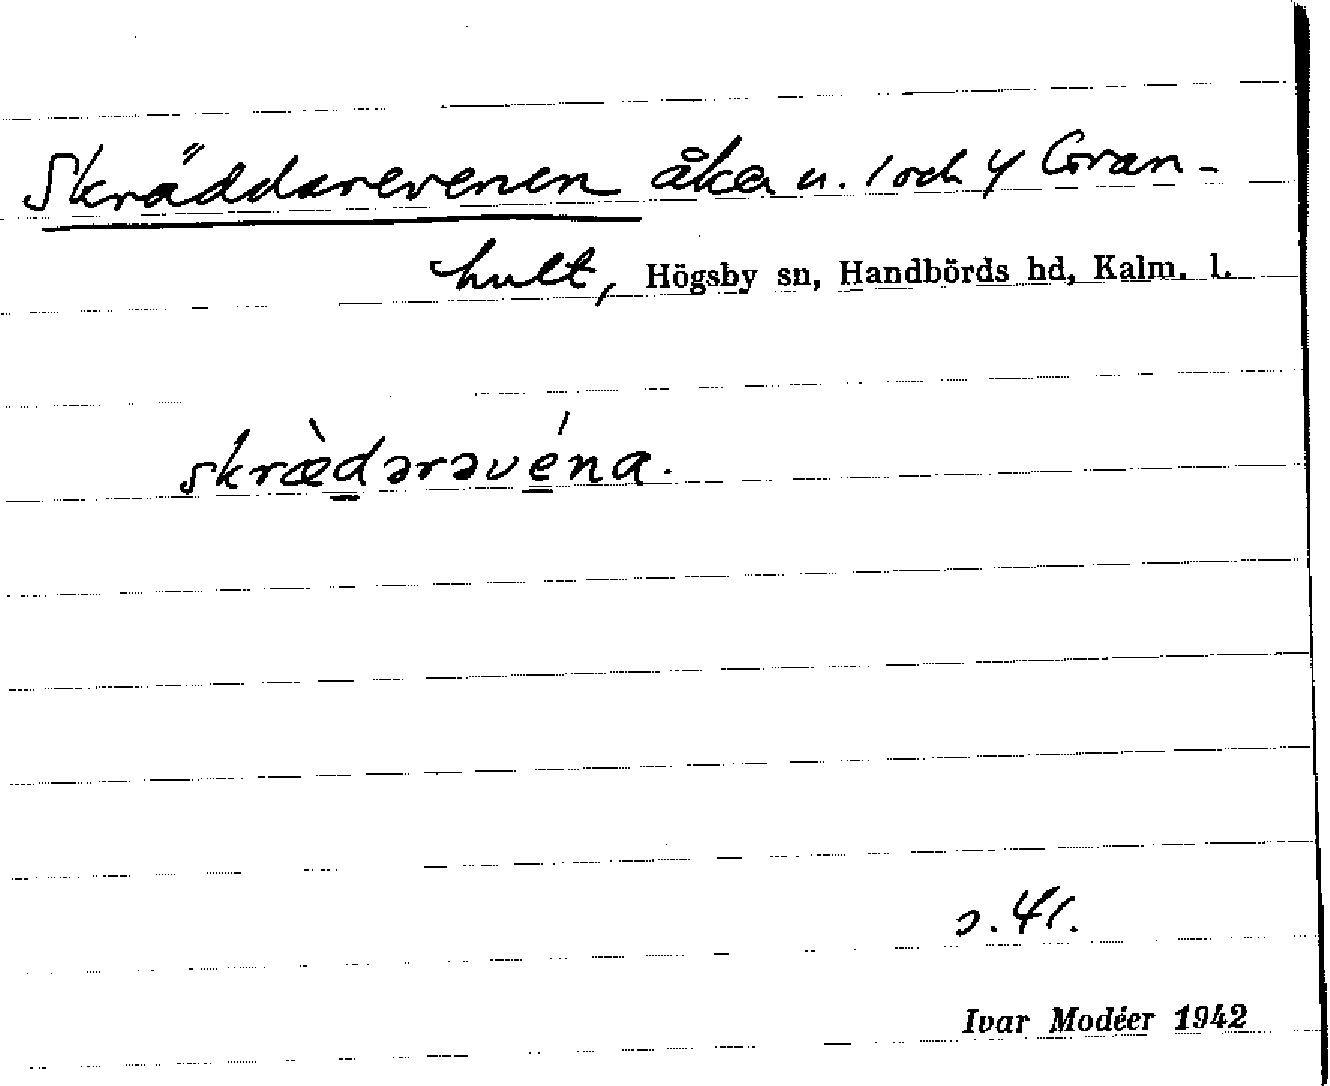 Skräddarevenen åka u. 1 och 4 Gran-
hult, Högsby sn, Handbörds hd, Kalm. l.
skræ̀dərəvéna.
s. 41.
Ivar Modéer 1942